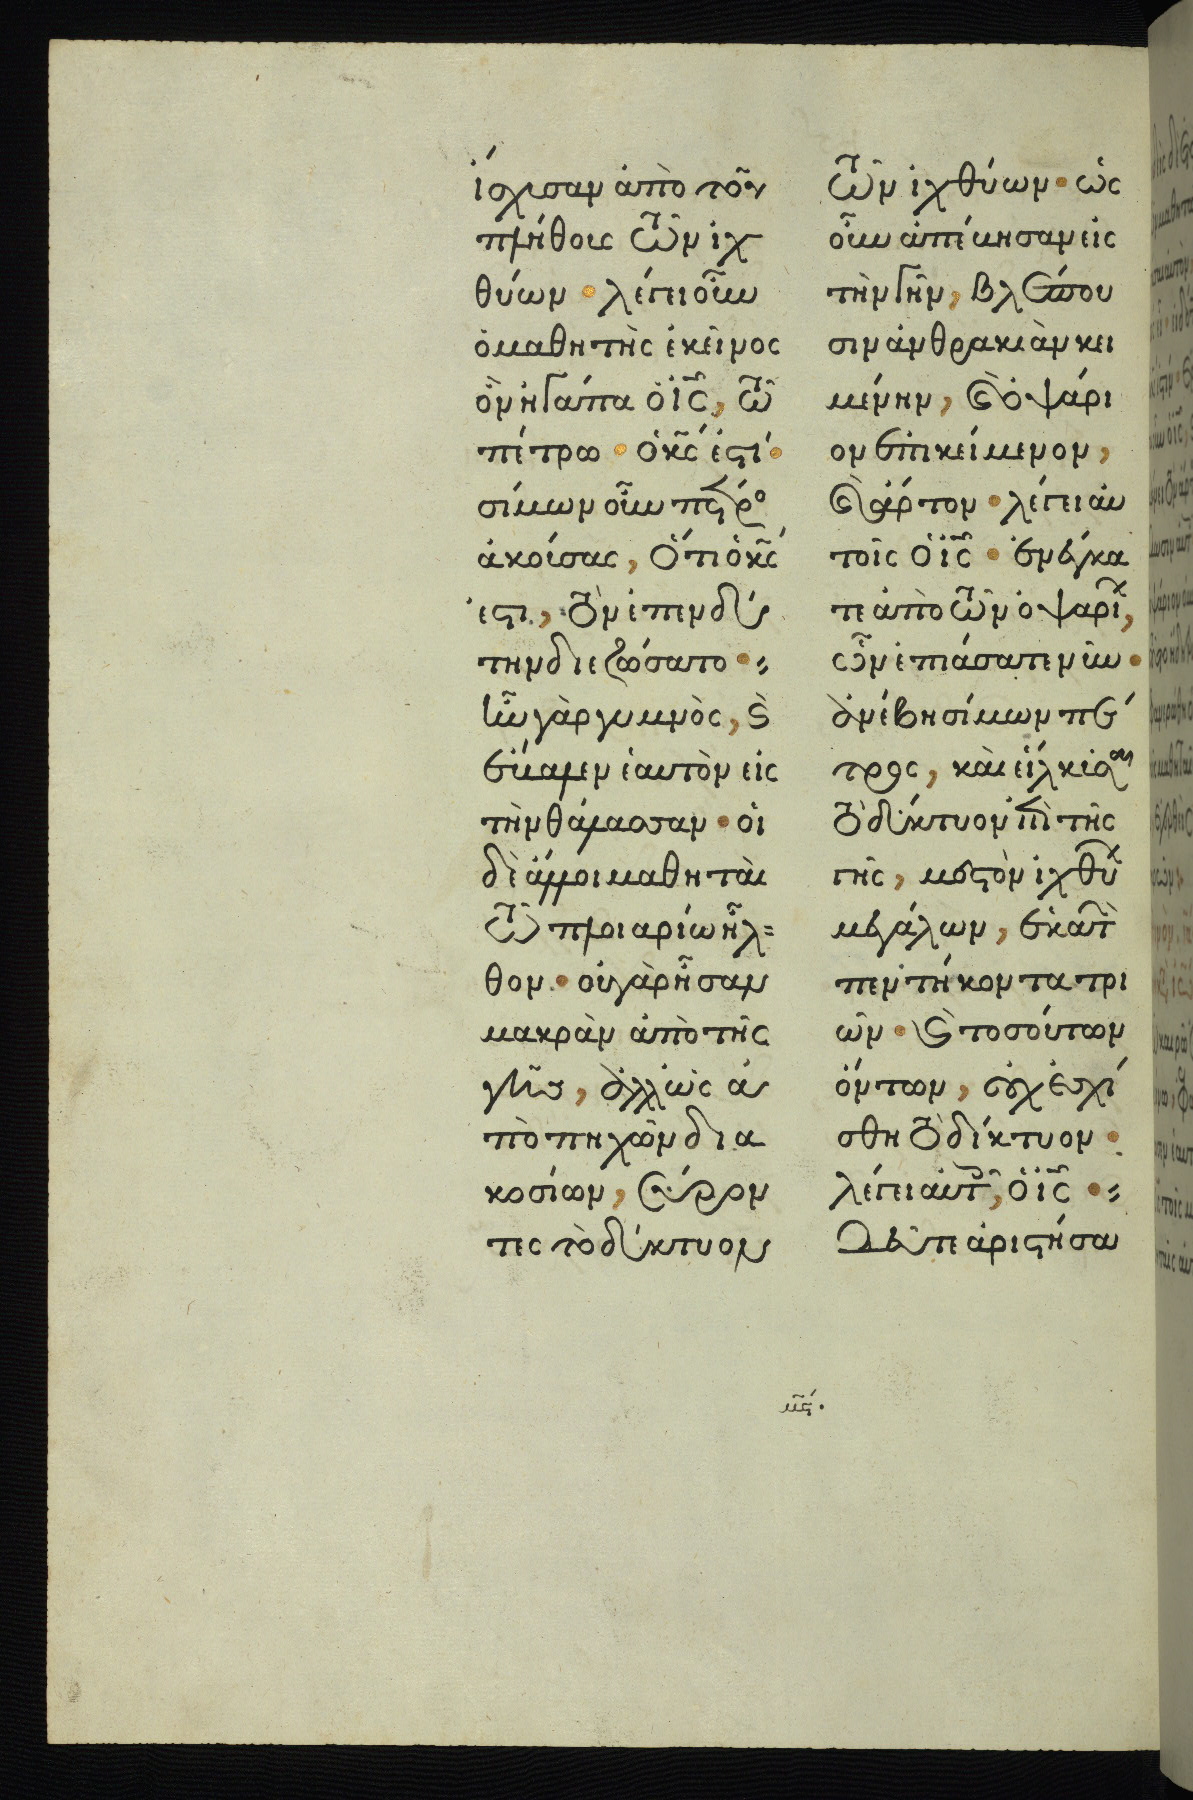 ίσχισαν ἀπὸ τοῦ
πλήθους τῶν ἰχ
θύων · λέγει οὖν
ὁ μαθητὴς ἐκεῖνος
ὃν ἠγάπα ὁ ἰς̅, τῷ
πέτρω · ὁ κς̅ ἐστί ·
σίμων οὖν πέτρο
ἀκούσας, ὅτι ὁ κς̅
ἐστι, τὸν ἐπενδύ
την διεζώσατο ·
ἦν γὰρ γυμνὸς, καὶ
ἔβαλεν ἑαυτὸν εἰς
τὴν θάλασσαν · οἱ
δὲ ἄλλοι μαθηταὶ
τῷ πλοιαρίω ἦλ=
θον · οὐ γὰρ ἦσαν
μακρὰν ἀπὸ τῆς
γῆς, ἀλλ' ὡς ἀ
πὸ πηχῶν δια
κοσίων, σύρον
τες τὸ δίκτυον
τῶν ἰχθύων · ὡς
οὖν ἀπέβησαν εἰς
τὴν γῆν, βλέπου
σιν ἀνθρακιὰν κει
μένην, καὶ ὀψάρι
ον ἐπικείμενον,
καὶ ἄρτον · λέγει αὐ
τοῖς ὁ ἰς̅ · ἐνέγκα
τε ἀπὸ τῶν ὀψαρί,
ὧν ἐπιάσατε νῦν ·
ἀνέβη σίμων πέ
τρος, καὶ εἵλκυσεν
τὸ δίκτυον ἐπὶ τῆς
γῆς, μεστὸν ἰχθύ
μεγάλων, ἑκατὸ
πεντήκοντα τρι
ῶν · καὶ τοσούτων
ὄντων, οὐκ ἐσχί
σθη τὸ δίκτυον ·
λέγει αὐτοῖς, ὁ ἰς̅ ·
Δεῦτε ἀριστήσα
μϛ ·